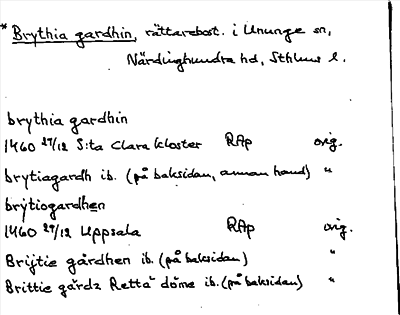 * Brythia gardhin, rättarebost. i Ununge sn,
Närdinghundra hd, Sthlms l.
brythia gardhin
1460 27/12 S:ta Clara kloster RAp orig.
brytiagardh ib. (på baksidan, annan hand) "
brytiogardhen
1460 27/12 Uppsala RAp orig.
Brijtie gårdhen ib. (på baksidan) "
Brittie gårdz Retta döme ib. (på baksidan) "